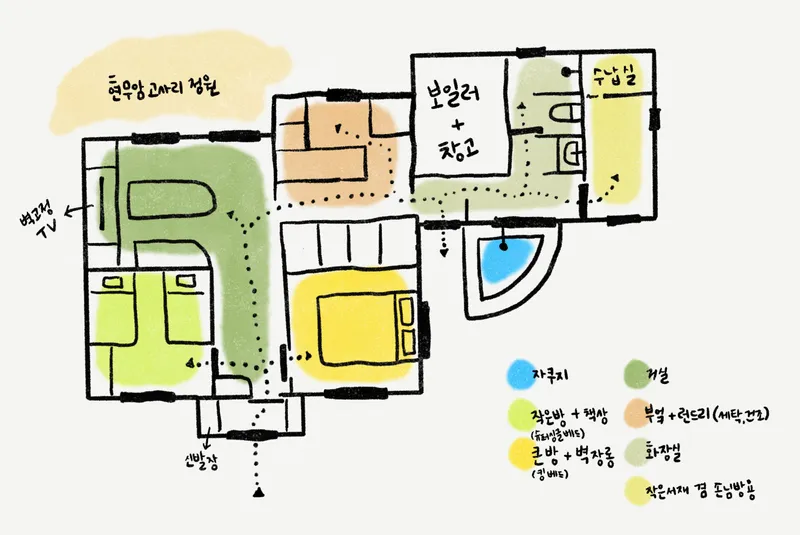 현무암 고사리 정원
보일러
+
창고
수납실
벽고정
TV
신발장
자쿠지
거실
작은방 + 책상
(슈퍼싱글베드)
부엌 + 런드리 (세탁,건조)
큰방 + 벽장롱
(킹베드)
화장실
작은서재 겸 손님방용